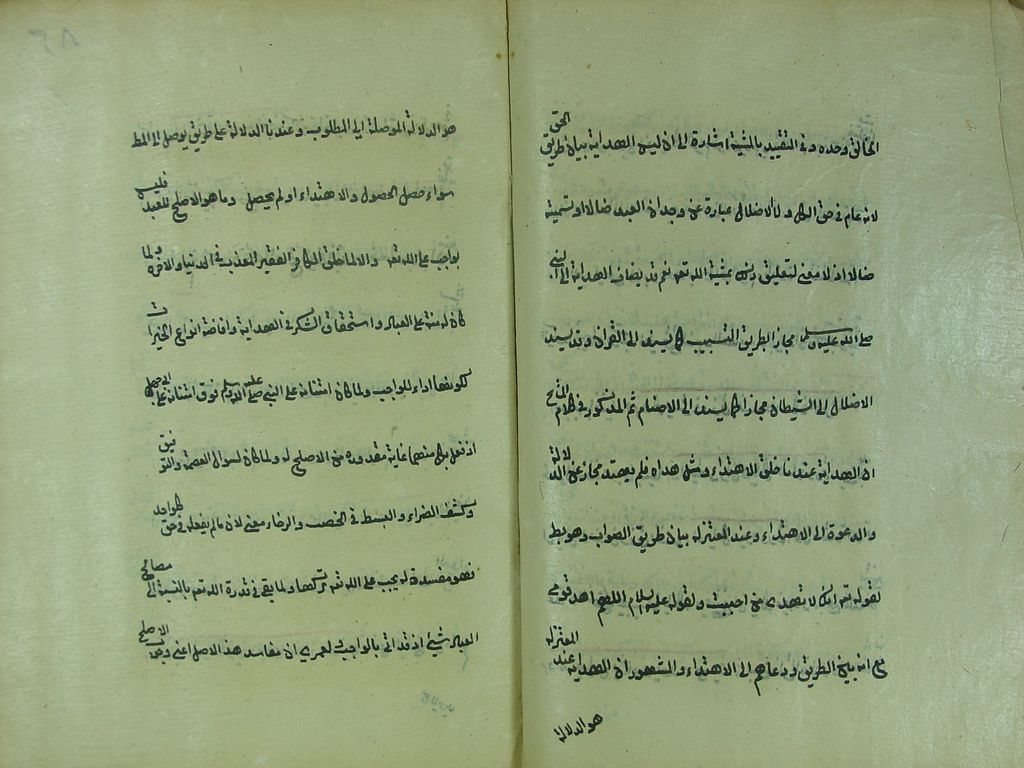 الخالق وحده وفى التقييد بالمشية اشارة الى ان ليس الهداية بيان طريق الحق
لانه عام فى حق الكل ولا الاضلال عبارة عن وجدان العبد ضالا او تسميته
ضالا اذ لا معنى لتعليق ذلك بمشية الله تعه نعم قد يضاف الهداية الى النبى
صلى الله عليه وسلم مجازا بطريق التسبيب كما يسند الى القران وقد يسند
الاضلال الى الشيطان مجازا كما يسند الى الاصنام ثم المذكور فى كلام المشايخ
ان الهداية عندنا خلق الاهتداء ومثل هداه فلم يهتد مجاز عن الدلالة
والدعوة الى الاهتداء وعند المعتزله بيان طريق الصواب وهو بط
لقوله تعه انك لا تهدى من احببت ولقوله عليه السلام اللهم اهد قومى
مع انه بين الطريق ودعاهم الى الاهتداء والمشهور ان الهداية عند المعتزله
هو الدلالة
هو الدلالة الموصلة الى المطلوب وعندنا الدلالة على طريق يوصل الى المط
سواء حصل الحصول والاهتداء او لم يحصل وما هو الاصلح للعبد فليس
بواجب على الله تعه والا لما خلق الكافر الفقير المعذب فى الدنيا والاخرة ولما
كان له منة على العباد واستحقاق الشكر فى الهداية وافاضة انواع الخيرات
لكونها اداء للواجب ولما كان امتنانه على النبى صلى الله عليه وسلم فوق امتنانه على ابى جهل
اذ فعل بكل منهما غاية مقدوره من الاصلح له ولما كان لسوال العصمة والتوفيق
وكشف الضراء والبسط فى الخصب والرخاء معنى لان ما لم يفعله فى حق كل واحد
فهو مفسدة له يجب على الله تعه تركها ولما بقى فى قدرة الله تعه بالنسبة الى مصالح
العباد شيئ اذ قد اتى بالواجب ولعمرى ان مفاسد هذا الاصل اعنى وجوب الاصلح